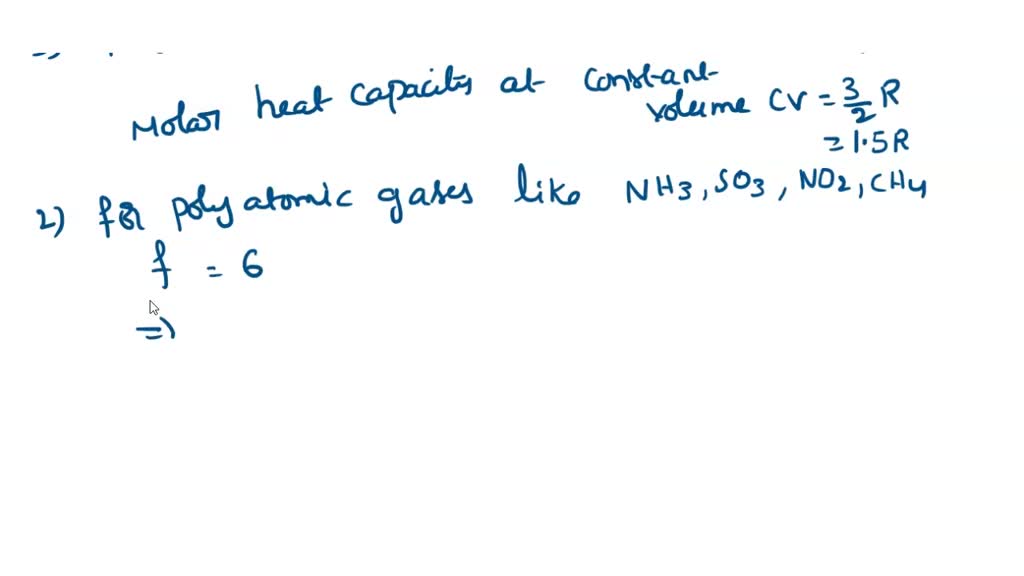 Molar heat capacity at constant
volume CV = 3/2 R
= 1.5R
2) for polyatomic gases like NH3, SO3, NO2, CH4
f = 6
=>